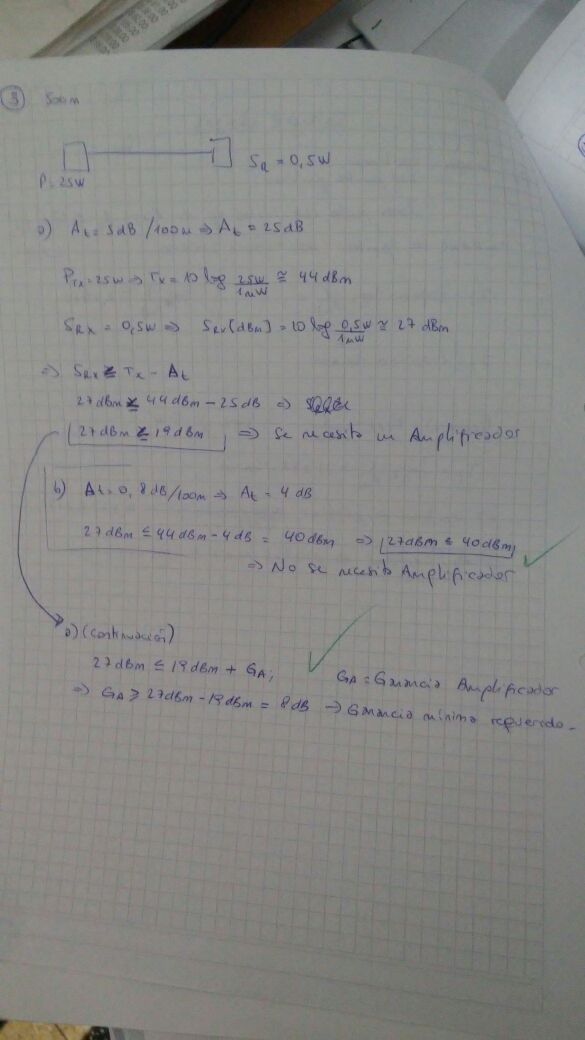 ③ 500m
P=25W
S_R = 0,5W
a) A_t = 5dB/100m ⇒ A_t = 25dB
P_TX = 25W ⇒ T_X = 10 log 25W/1mW ≅ 44 dBm
S_RX = 0,5W ⇒ S_RX[dBm] = 10 log 0,5W/1mW ≅ 27 dBm
⇒ S_RX ≤ T_X - A_t
27dBm ≤ 44dBm - 25dB ⇒
27dBm ≥ 19dBm ⇒ Se necesita un Amplificador
b) A_t = 0,8dB/100m ⇒ A_t = 4 dB
27dBm ≤ 44dBm - 4dB = 40dBm ⇒ 27dBm ≤ 40dBm
⇒ No se necesita Amplificador
a) (continuación)
27dBm ≤ 19dBm + G_A; G_A = Ganancia Amplificador
⇒ G_A ≥ 27dBm - 19dBm = 8dB → Ganancia mínima requerida-